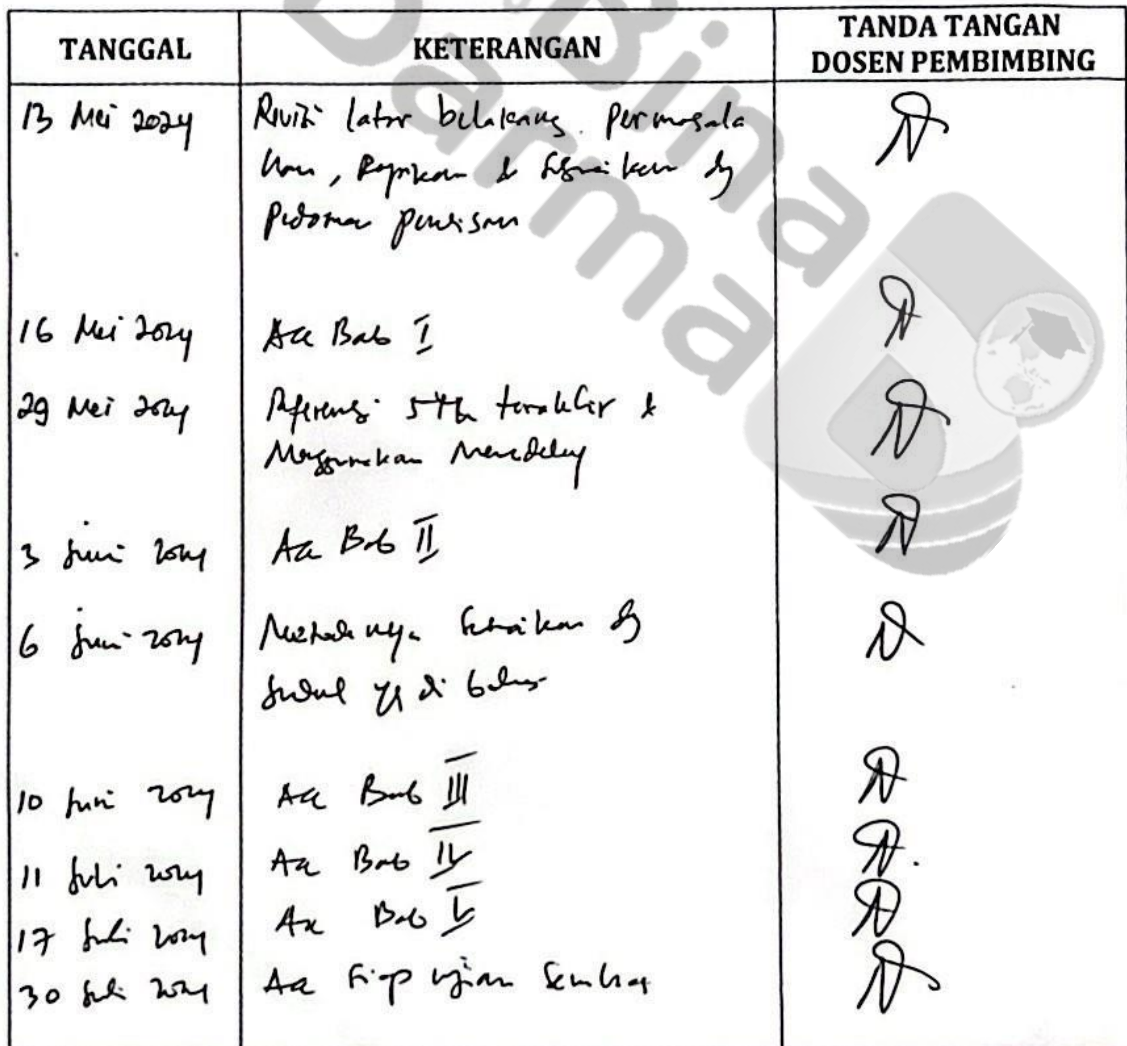 TANGGAL
KETERANGAN
TANDA TANGAN
DOSEN PEMBIMBING
13 Mei 2024
Revisi latar belakang permasala
han, Rapikan & Sesuaikan dg
Pedoman penulisan
16 Mei 2024
Acc Bab I
29 Mei 2024
Referensi 5 th terakhir &
Menggunakan Mendeley
3 Juni 2024
Acc Bab II
6 Juni 2024
Metodenya Sesuaikan dg
Judul yg di bahas
10 Juni 2024
Acc Bab III
11 Juli 2024
Acc Bab IV
17 Juli 2024
Acc Bab V
30 Juli 2024
Acc Siap ujian
Bina
Darma